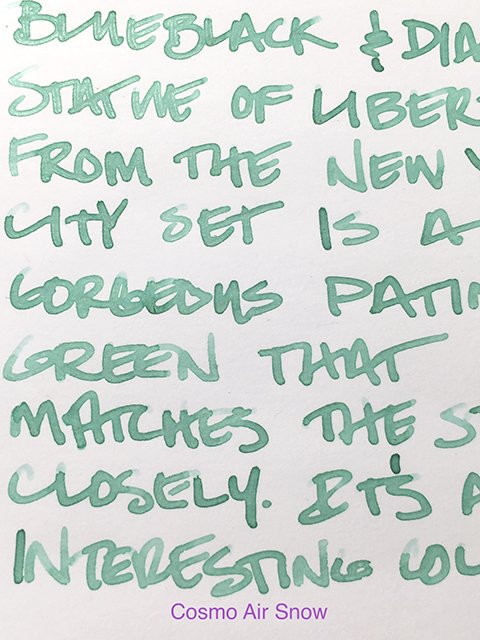 BLUEBLACK & DIA
STATUE OF LIBER
FROM THE NEW Y
CITY SET IS A
GORGEOUS PATIN
GREEN THAT
MATCHES THE ST
CLOSELY. IT'S A
INTERESTING COL
Cosmo Air Snow